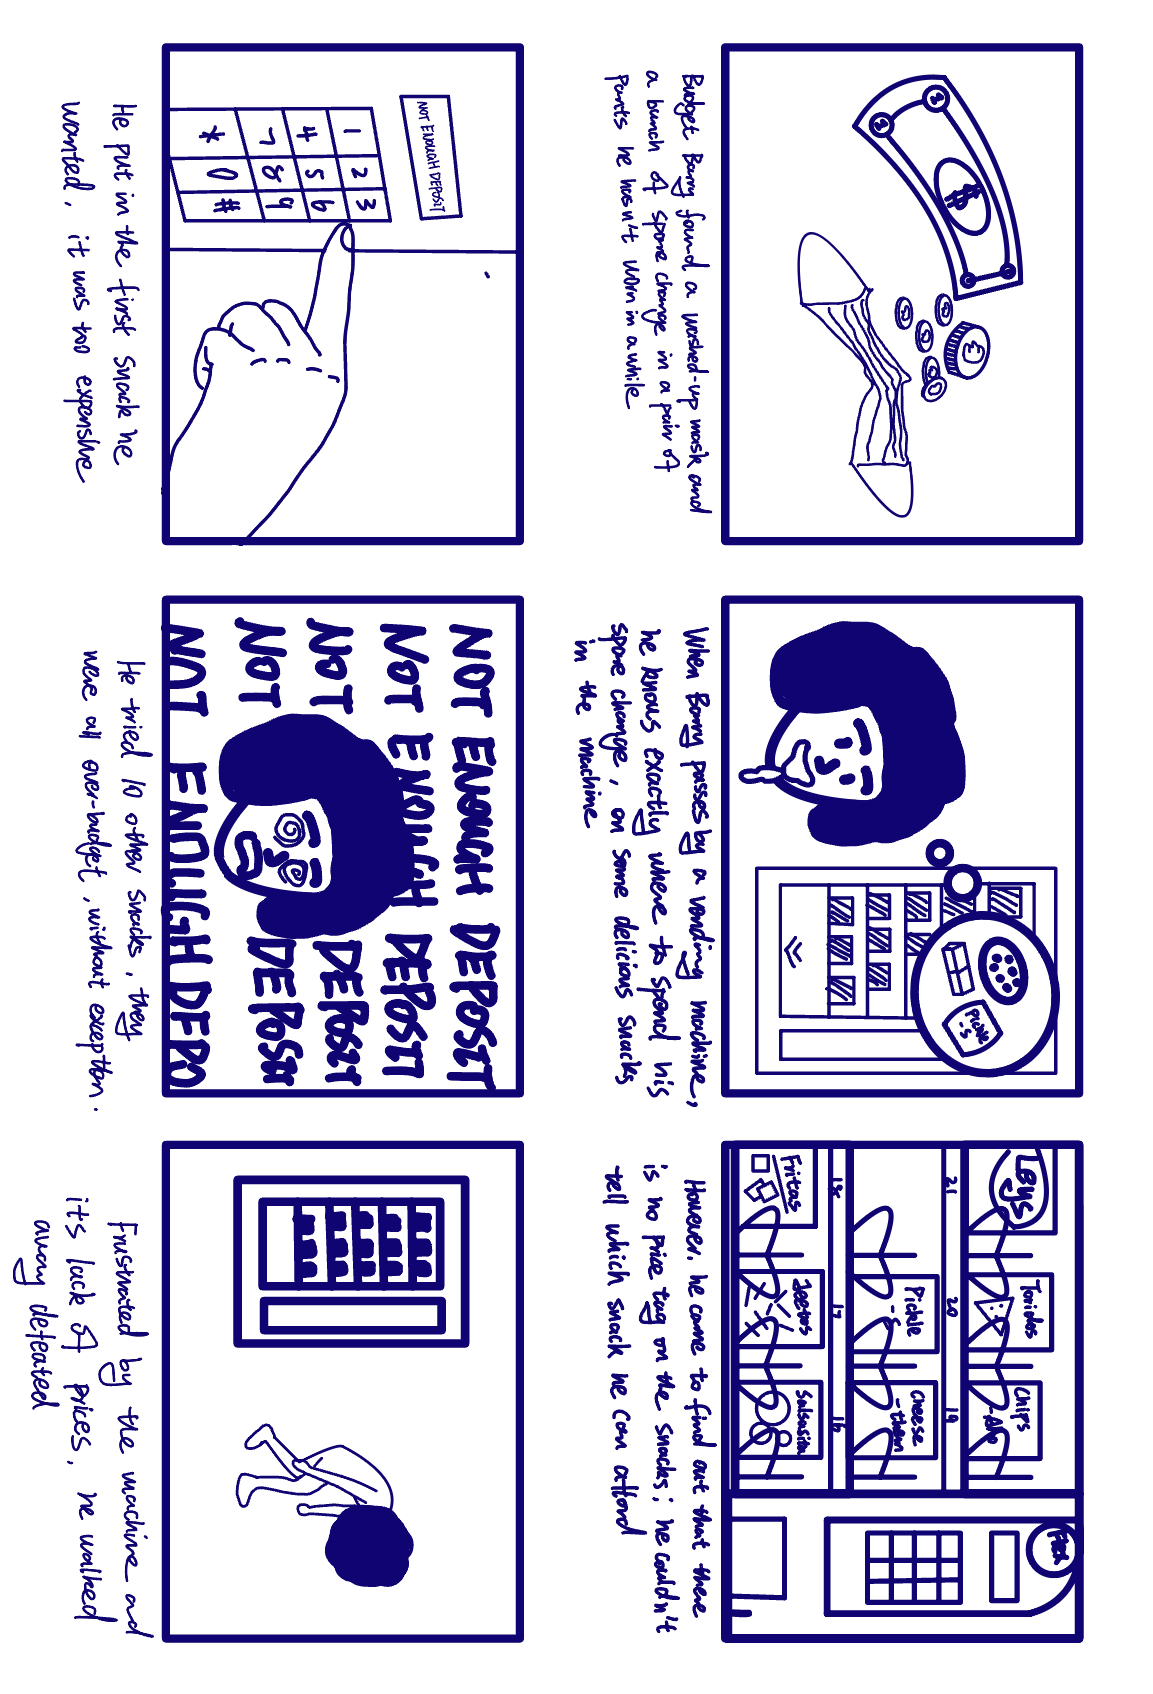 $
Budget Barry found a washed-up mask and
a bunch of spare change in a pair of
Pants he hasn't worn in a while
Pickle
-s
When Barry passes by a vending machine,
he knows exactly where to spend his
spare change, on some delicious snacks
in the machine
Lays Toridos Chips
-Aho
21 20 19
Pickle
-s
Cheese
-them
18 17 16
Fritas Jeetos Salsasita
However, he came to find out that there
is no price tag on the snacks; he couldn't
tell which snack he can afford
NOT ENOUGH DEPOSIT
1 2 3
4 5 6
7 8 9
* 0 #
He put in the first snack he
wanted, it was too expensive
NOT ENOUGH DEPOSIT
NOT ENOUGH DEPOSIT
NOT DEPOSIT
NOT DEPOSIT
NOT ENOUGH DEPO
He tried 10 other snacks, they
were all over-budget, without exception.
Frustrated by the machine and
it's lack of prices, he walked
away defeated